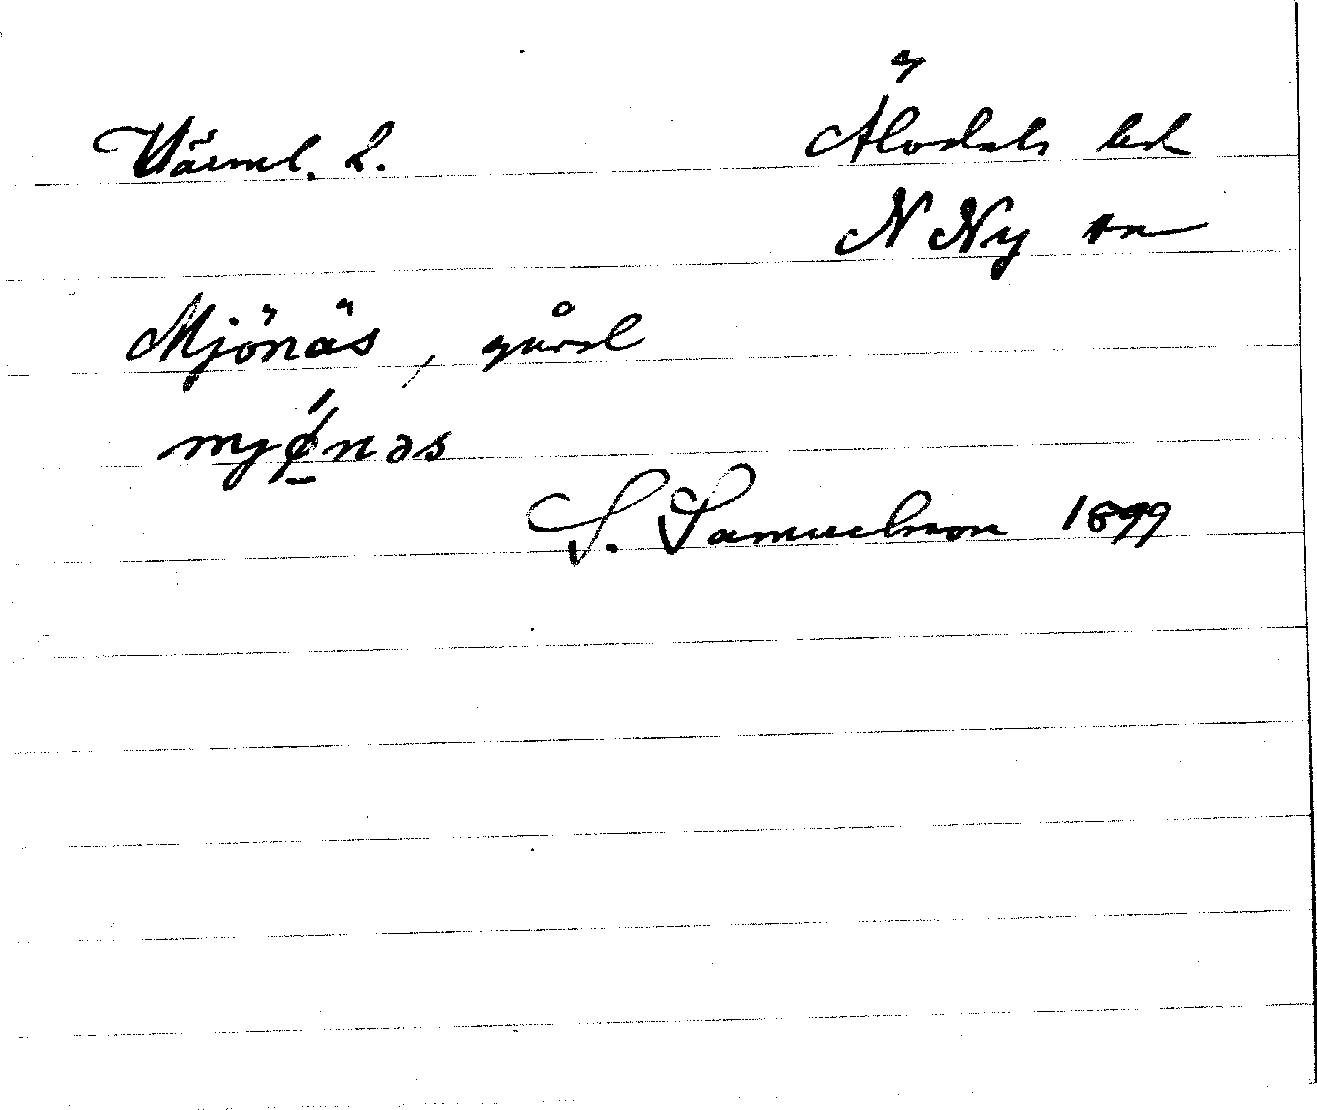 Värml. L. Älvdals hd
N Ny sn
Mjönäs, gård
mjǿ̱nəs
S. Samuelsson 1899